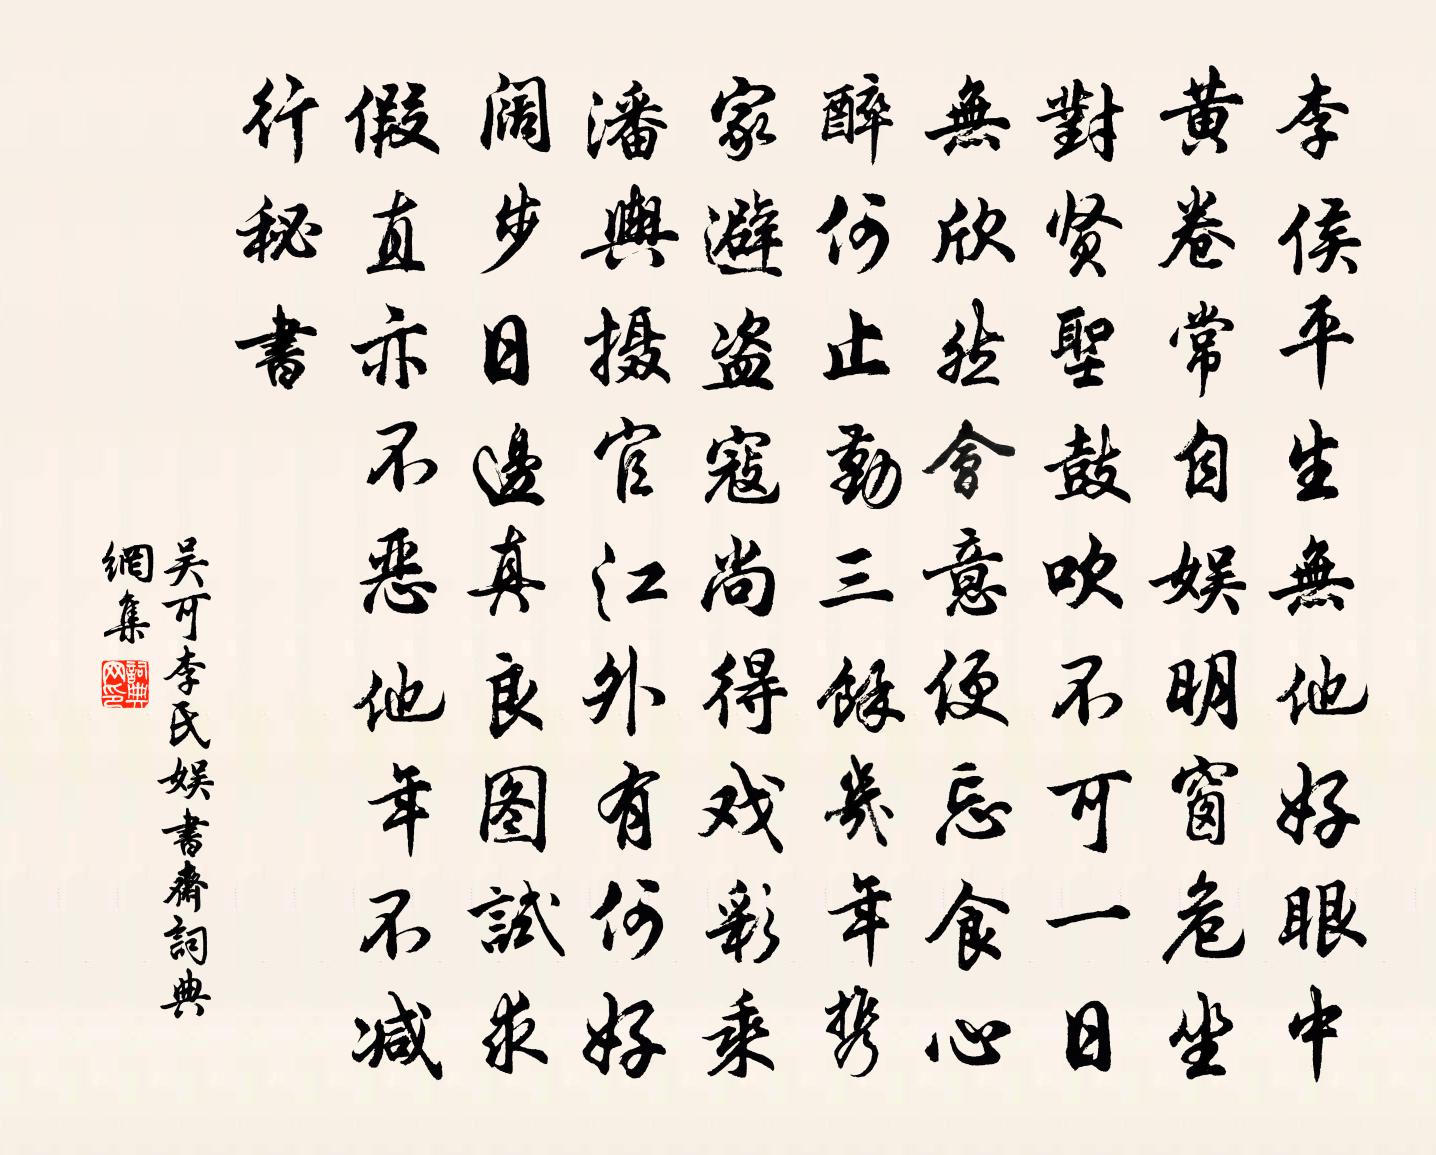 李侯平生無他好眼中
黄卷常自娱明窗危坐
對贤聖鼓吹不可一日
無欣然會意便忘食心
醉何止勤三餘幾年携
家避盗寇尚得戏彩乘
潘輿摄官江外有何好
阔步日邊真良图試求
假直亦不惡他年不减
行秘書
吴可李氏娱書齋詞典
網集
詞典
网印